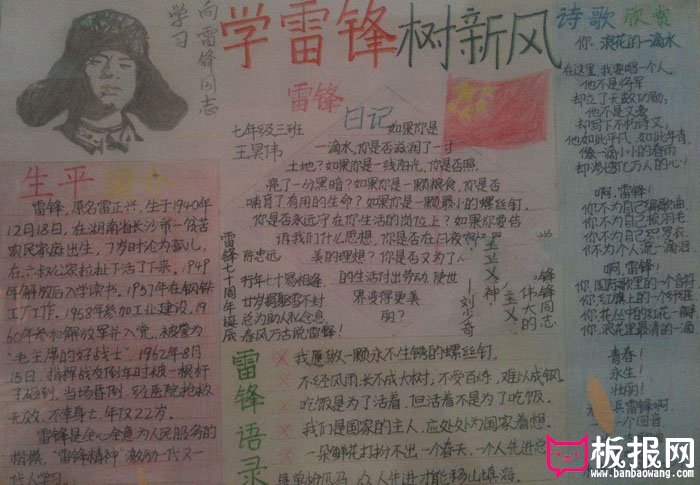 学习
向雷锋同志
学雷锋树新风
诗歌欣赏
你,浪花的一滴水
在这里,我要唱一个人。
他不是将军
却立了无数功勋;
他不是文豪
却写下不朽诗文;
像一滴小小的春雨
啊,雷锋!
你不为自己编歌曲,
你不为自己披羽毛
你不为自己织罗衣
你不为个人流一滴泪
啊,雷锋!
你,国际歌里的一个音符
你,红旗上的一个纤维
你,花丛中的红花一瓣
你,浪花里最清的一滴
青春!
永生!
壮丽!
一个回音
雷锋
日记
七年级三班
王昊伟
如果你是
一滴水,你是否滋润了一寸
土地?如果你是一线阳光,你是否照
亮了一分黑暗?如果你是一颗粮食,你是否
哺育了有用的生命?如果你是一颗最小的螺丝钉,
你是否永远守在你生活的岗位上?如果你要告
诉我们什么思想,你是否在日夜
美的理想?你是否又为了
的生活付出劳动,使世
界变得更美
丽?
生平简介
雷锋,原名雷正兴,生于1940年
12月18日,在湖南省长沙市一贫苦
农民家庭出生,7岁时沦为孤儿,
在六叔公家拉扯下活了下来。1949
年解放后入学读书。1957年在钢铁
厂工作。1958年参加工业建设,19
60年参加解放军并入党,被誉为
“毛主席的好战士”,1962年8月
15日,指挥战友倒车时被一根杆
子砸到,当场昏倒。经医院抢救
无效,不幸身亡,年仅22岁。
雷锋是全心全意为人民服务的
楷模,“雷锋精神”激励一代又一
代人学习。
雷锋七十周年诞辰
陈忠远
春风万古说雷锋!
——刘少奇
雷锋语录
我愿做一颗永不生锈的螺丝钉。
不经风雨,长不成大树,不受百炼,难以成钢。
吃饭是为了活着,但活着不是为了吃饭。
我们是国家的主人,应处处为国家着想。
一朵鲜花打扮不出一个春天,一个人先进总
是单枪匹马,众人先进才能移山填海。
板报网
www.banbaowang.com